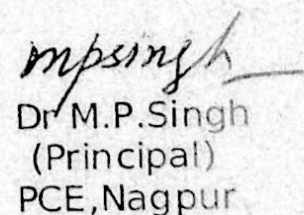 mpsingh
Dr M.P.Singh
(Principal)
PCE,Nagpur